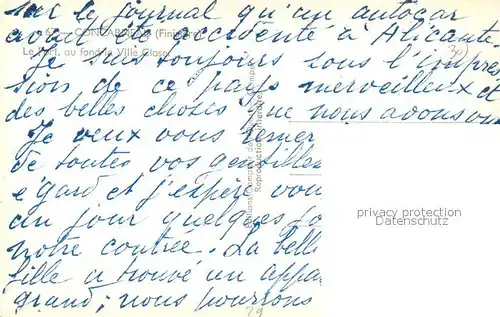 sur le journal qu'un autocar
avait été accidenté à Alicante
CONCARNEAU (Finistère)
Le Port, au fond la Ville Close
Je suis toujours sous l'impres
sion de ce pays merveilleux et
des belles choses que nous avons vu
Je veux vous remer
de toutes vos gentilles
égard et j'espère vou
un jour quelques jo
notre contrée. La belle
fille a trouvé un appa
grand; nous pourrons
30
29
privacy protection
Datenschutz